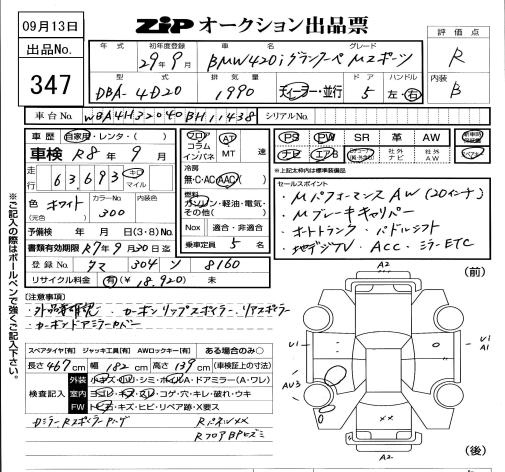 09月13日
ZiP オークション出品票
出品No.
347
年式
初年度登録
29年9月
車名
BMW420iグランクーペ Mスポーツ
グレード
評価点
R
内装
B
型式
DBA-4D20
排気量
1990
ディーラー・並行
ドア
5
ハンドル
左・右
車台No.
WBA4H32040BH11438
シリアルNo.
車歴 自家用・レンタ・( )
車検 R8年9月
走行
63,693
キロ
マイル
色
ホワイト
(元色)
カラーNo.
300
内装色
予備検 年 月 日 (3・8) No.
書類有効期限 R7年9月20日迄
登録No. タマ 304 ソ 8160
リサイクル料金 有(¥18,920) 未
フロア
コラム
インパネ
AT
MT
速
冷房
無・C・AC・AAC
燃料
ガソリン・軽油・電気・
その他( )
Nox 適合・非適合
乗車定員 5 名
PS
PW
SR
革
AW
ナビ
エアB
社外
ナビ
社外
AW
*上記太枠内は標準装備品
セールスポイント
・MパフォーマンスAW(20インチ)
・Mブレーキキャリパー
・オートトランク ・パドルシフト
・地デジTV ・ACC ・ミラーETC
※ご記入の際はボールペンで強くご記入下さい。
(注意事項)
・カーボンリップスポイラー・リアスポイラー
・カーボンドアミラーカバー
スペアタイヤ[有] ジャッキ工具[有] AWロックキー[有] ある場合のみ○
長さ467cm 幅182cm 高さ139cm (車検証上の寸法)
検査記入
外装 小キズ・凹・シミ・ホイルA・ドアミラー(A・ワレ)
室内 ヨゴレ・キズ・スレ・コゲ・穴・キレ・破れ・ウキ
FW トビ石・キズ・ヒビ・リペア跡・X要ス
RフロアBPヒズミ
(前)
A2
U1
U1
A1
AU3
××
A2
(後)